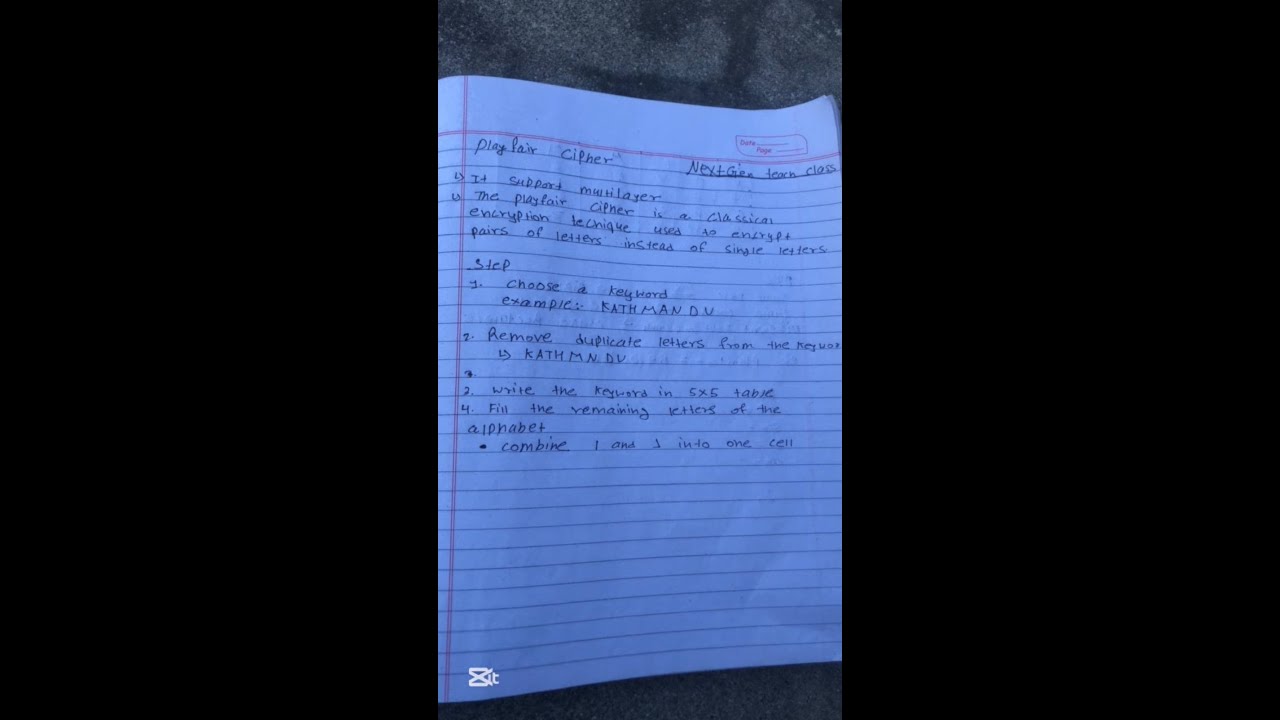 Date
Page
Playfair Cipher
NextGen teach class
It support multilayer
The playfair cipher is a classical
encryption tecnique used to encrypt
pairs of letters instead of single letters
Step
1. Choose a keyword
example:- KATHMANDU
2. Remove duplicate letters from the keywor
↳ KATHMNDU
3.
3. Write the keyword in 5x5 table
4. Fill the remaining letters of the
alphabet
• Combine I and J into one cell